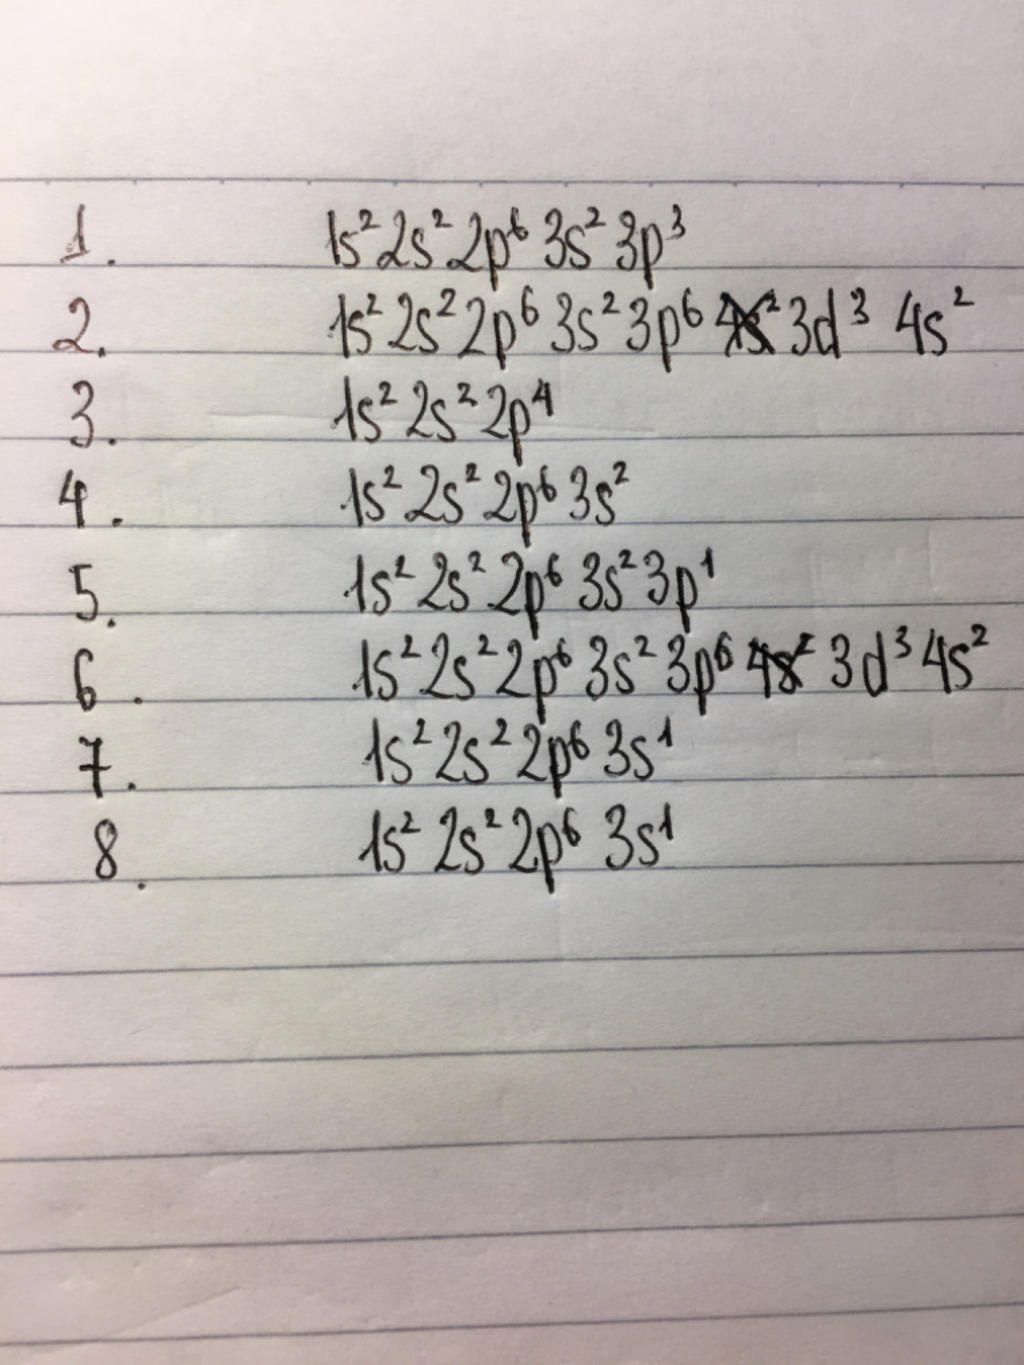 1. 1s² 2s² 2p⁶ 3s² 3p³
2. 1s² 2s² 2p⁶ 3s² 3p⁶ 4s² 3d³ 4s²
3. 1s² 2s² 2p⁴
4. 1s² 2s² 2p⁶ 3s²
5. 1s² 2s² 2p⁶ 3s² 3p¹
6. 1s² 2s² 2p⁶ 3s² 3p⁶ 4s² 3d³ 4s²
7. 1s² 2s² 2p⁶ 3s¹
8. 1s² 2s² 2p⁶ 3s¹